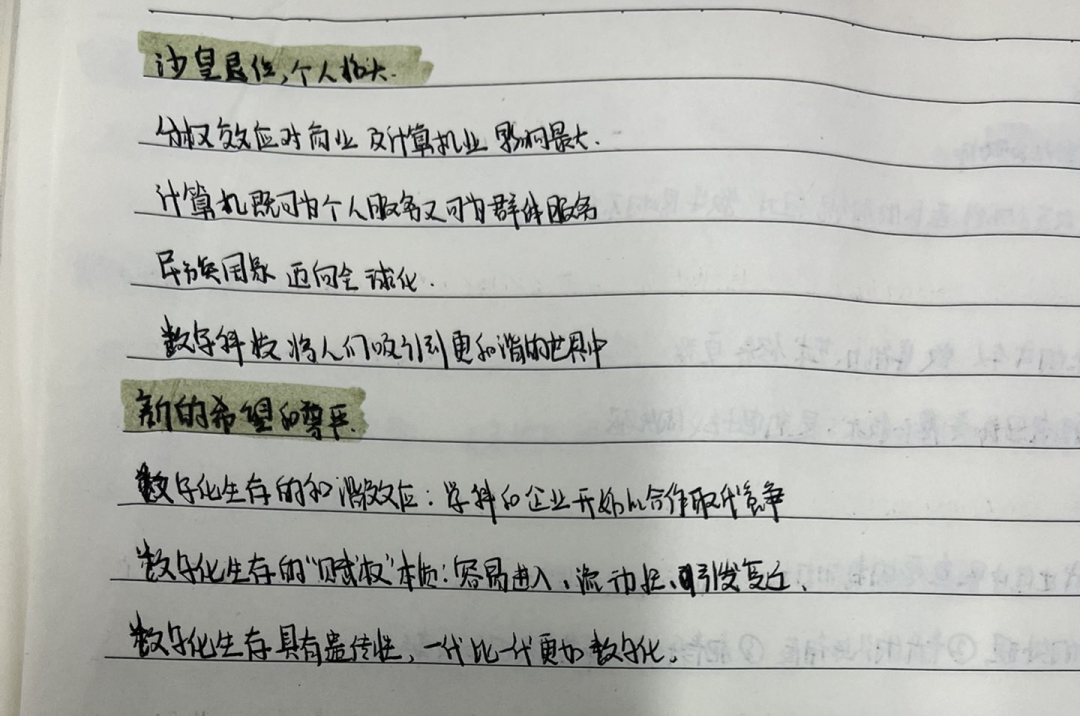 沙皇退位，个人抬头.
分权效应对商业及计算机业影响最大.
计算机既可为个人服务又可为群体服务
民族国家 迈向全球化.
数字科技将人们吸引到更和谐的世界中
新的希望和尊严.
数字化生存的和谐效应：学科和企业开始以合作取代竞争
数字化生存的“赋权”本质：容易进入、流动性、引发变迁.
数字化生存具有遗传性，一代比一代更加数字化.